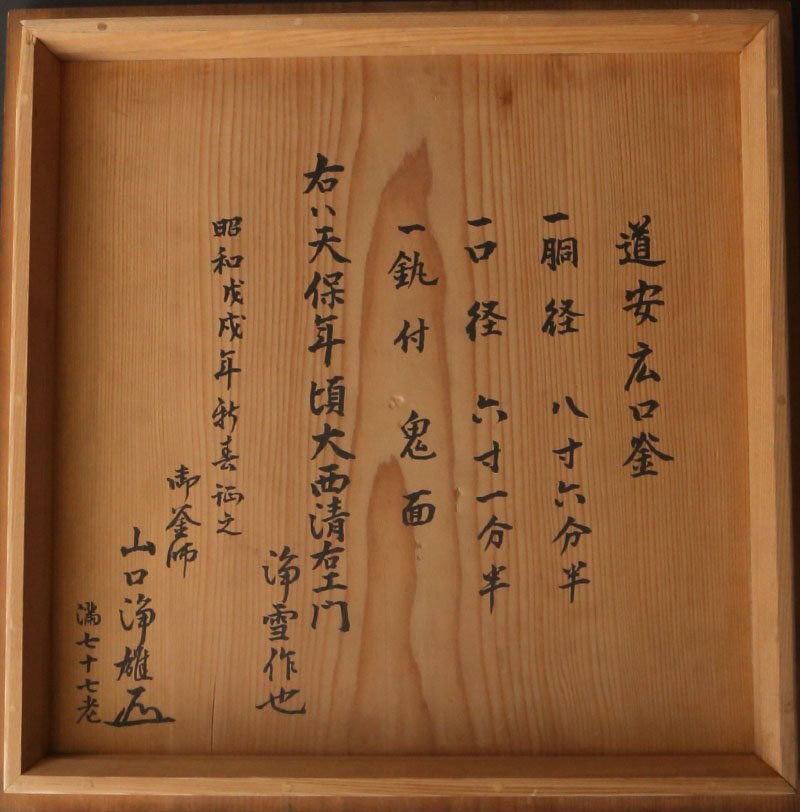 道安広口釜
一胴径 八寸六分半
一口径 六寸一分半
一釻付 鬼面
右ハ天保年頃大西清右エ門
浄雪作也
昭和戊戌年新春証之
御釜師
山口浄雄
満七十七老